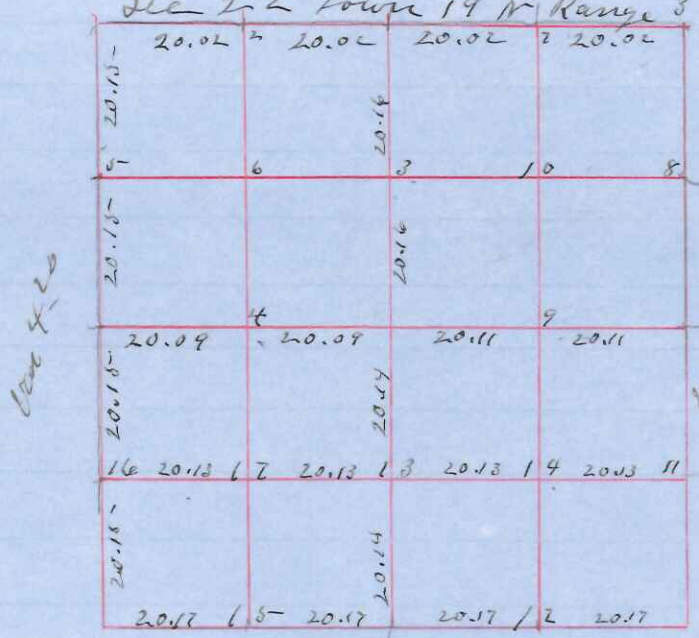 Sec 22 Town 19 N Range 3
20.02 2 20.02 20.02 2 20.02
20.15
20.16
5 6 3 10 8
20.15
20.16
4 9
20.09 20.09 20.11 20.11
20.15
20.14
16 20.13 17 20.13 13 20.13 14 20.13 11
20.15
20.14
20.17 15 20.17 20.17 12 20.17
4.20